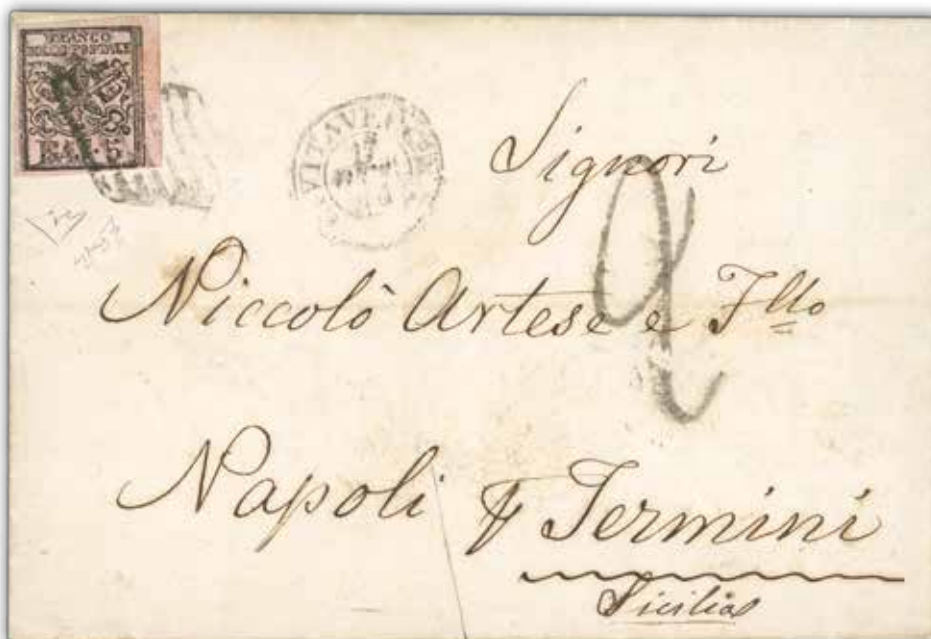 FRANCO
BOLLO POSTALE
BAJ. 5
Signori
Niccolò Artese e Fllo
Napoli
Termini
Sicilia
2